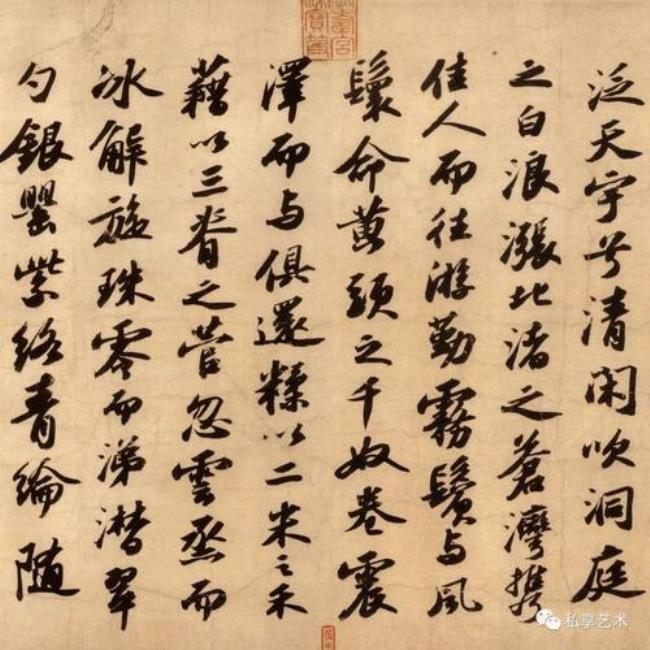 泛天宇兮清閑吹洞庭
之白浪漲北渚之蒼灣携
佳人而往游勤霧鬢与風
鬟命黄頭之千奴卷震
澤而与俱還糅以二米之禾
藉以三脊之菅忽雲烝而
冰解旋珠零而涕潸翠
勺銀罌紫絡青綸隨
私享艺术